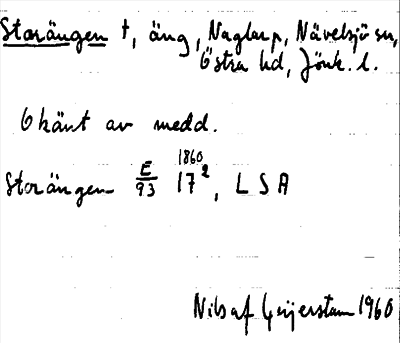 Storängen †, äng, Naglarp, Nävelsjö sn,
Östra hd, Jönk. l.
Okänt av medd.
Storängen E/93 1860 17², L S A
Nils af Geijerstam 1960